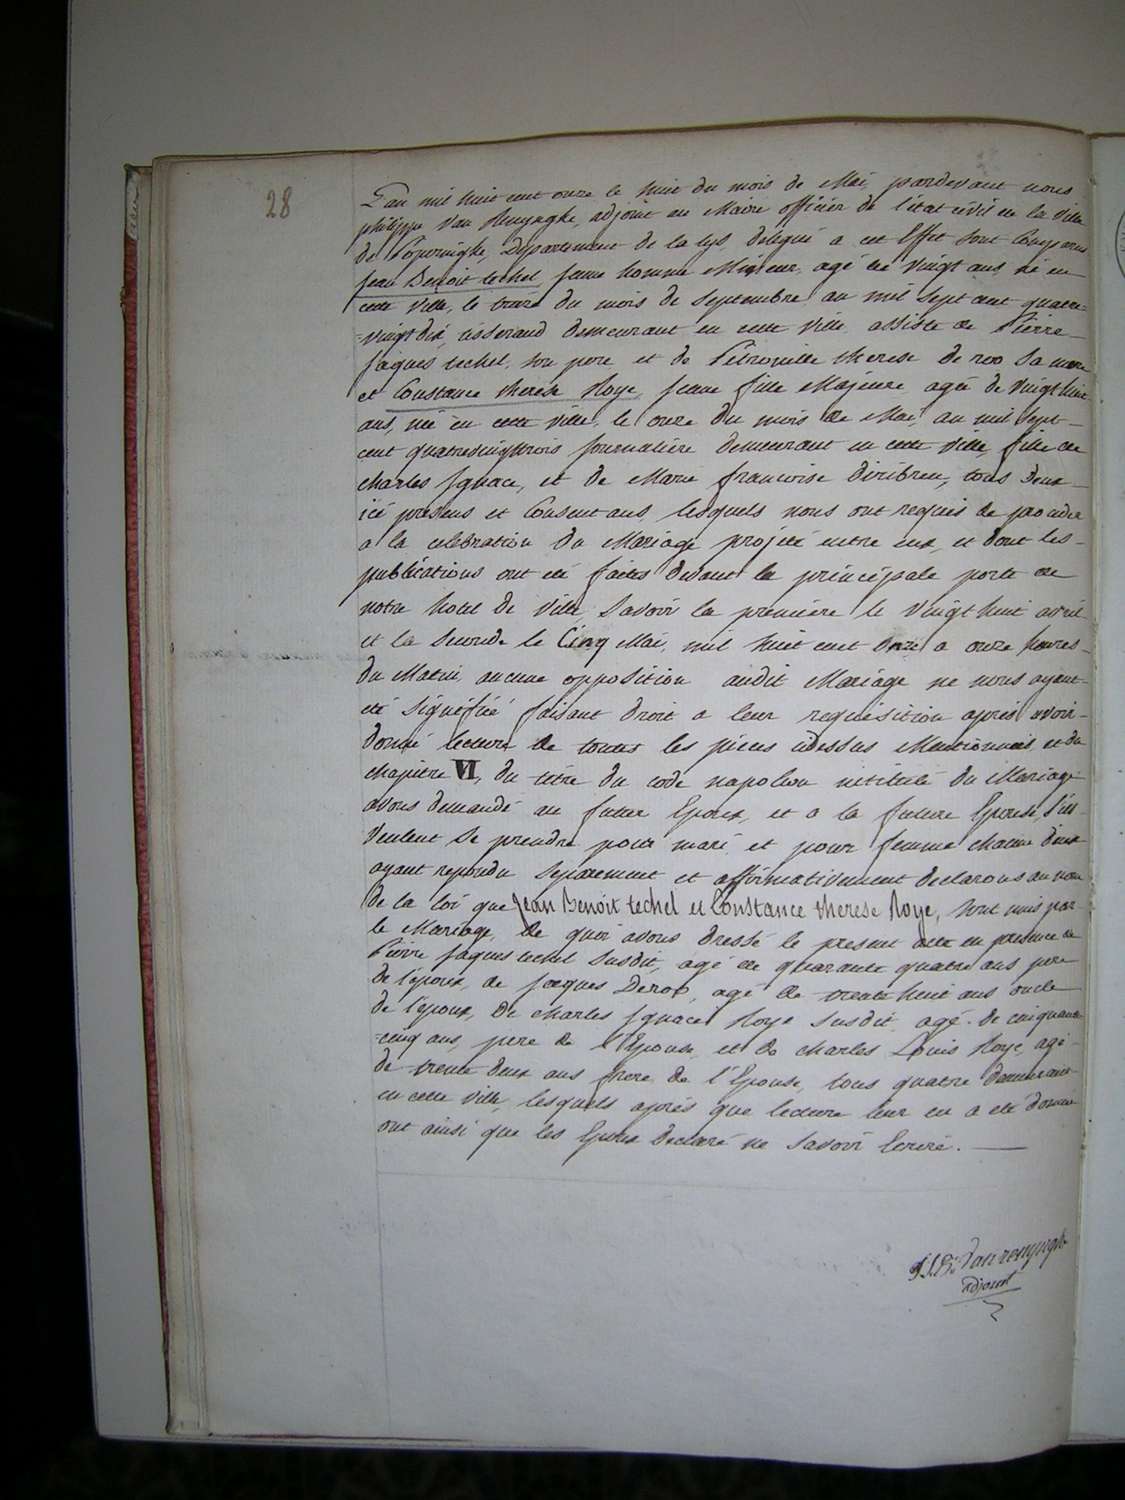 28
L'an mil huit cent onze le huit du mois de Mai, pardevant nous
philippe Van Renynghe, adjoint au Maire officier de l'état civil de la ville
de Poperinghe, Département de la Lys, délégué a cet Effet sont Comparus
Jean Benoit techel jeune homme Mineur, agé de vingt ans né en
cette ville, le treize du mois de septembre au mil sept cent quatre-
-vingt dix, tisserand demeurant en cette ville assisté de Pierre
Jaques techel, son pere et de Pétronille therese de roo sa mere
et Constance therese Roye, jeune fille Majeure agée de vingt huit
ans, née en cette ville, le onze du mois de Mai, au mil sept-
cent quatrevingttrois journalière demeurant en cette ville, fille de
charles Ignace, et de Marie francoise Diribreu, tous deux
icé presens et Consentans, lesquels nous ont requis de procéder
a la célébration du Mariage projeté entre eux, et dont les-
publications ont été faites devant la principale porte de
notre hotel de ville, savoir la première le vingt huit avril
et la seconde le Cinq Mai, mil huit cent onze a onze heures-
du Matin, aucune opposition audit Mariage ne nous ayant-
été signéfié faisant droit a leur requisition après avoir-
donné lecture de toutes les pièces cidessus Mentionnées, et du
chapitre VI, du titre du code napoléon intitulé du Mariage
avons demandé au futur Epoux, et a la future Epouse, s'ils-
veulent se prendre pour mari et pour femme chacun deux
ayant repondu séparement et affirmativement declarons au nom
de la loi que Jean Benoit techel et Constance therese Roye, sont unis par-
le Mariage, de quoi avons dressé le present acte en presence de
Pierre Jaques techel susdit, agé de quarante quatre ans pere
de l'époux, de Jacques Deroo, agé de trente huit ans oncle
de l'époux, de charles Ignace Roye susdit, agé de cinquante-
-cinq ans, pere de l'Epouse, et de charles Louis Roye, agé-
de trente deux ans frere de l'Epouse, tous quatre demeurant
en cette ville, lesquels après que lecture leur en a été donnée
ont ainsi que les Epoux declaré ne savoir Ecrire.
Van renynghe
adjoint